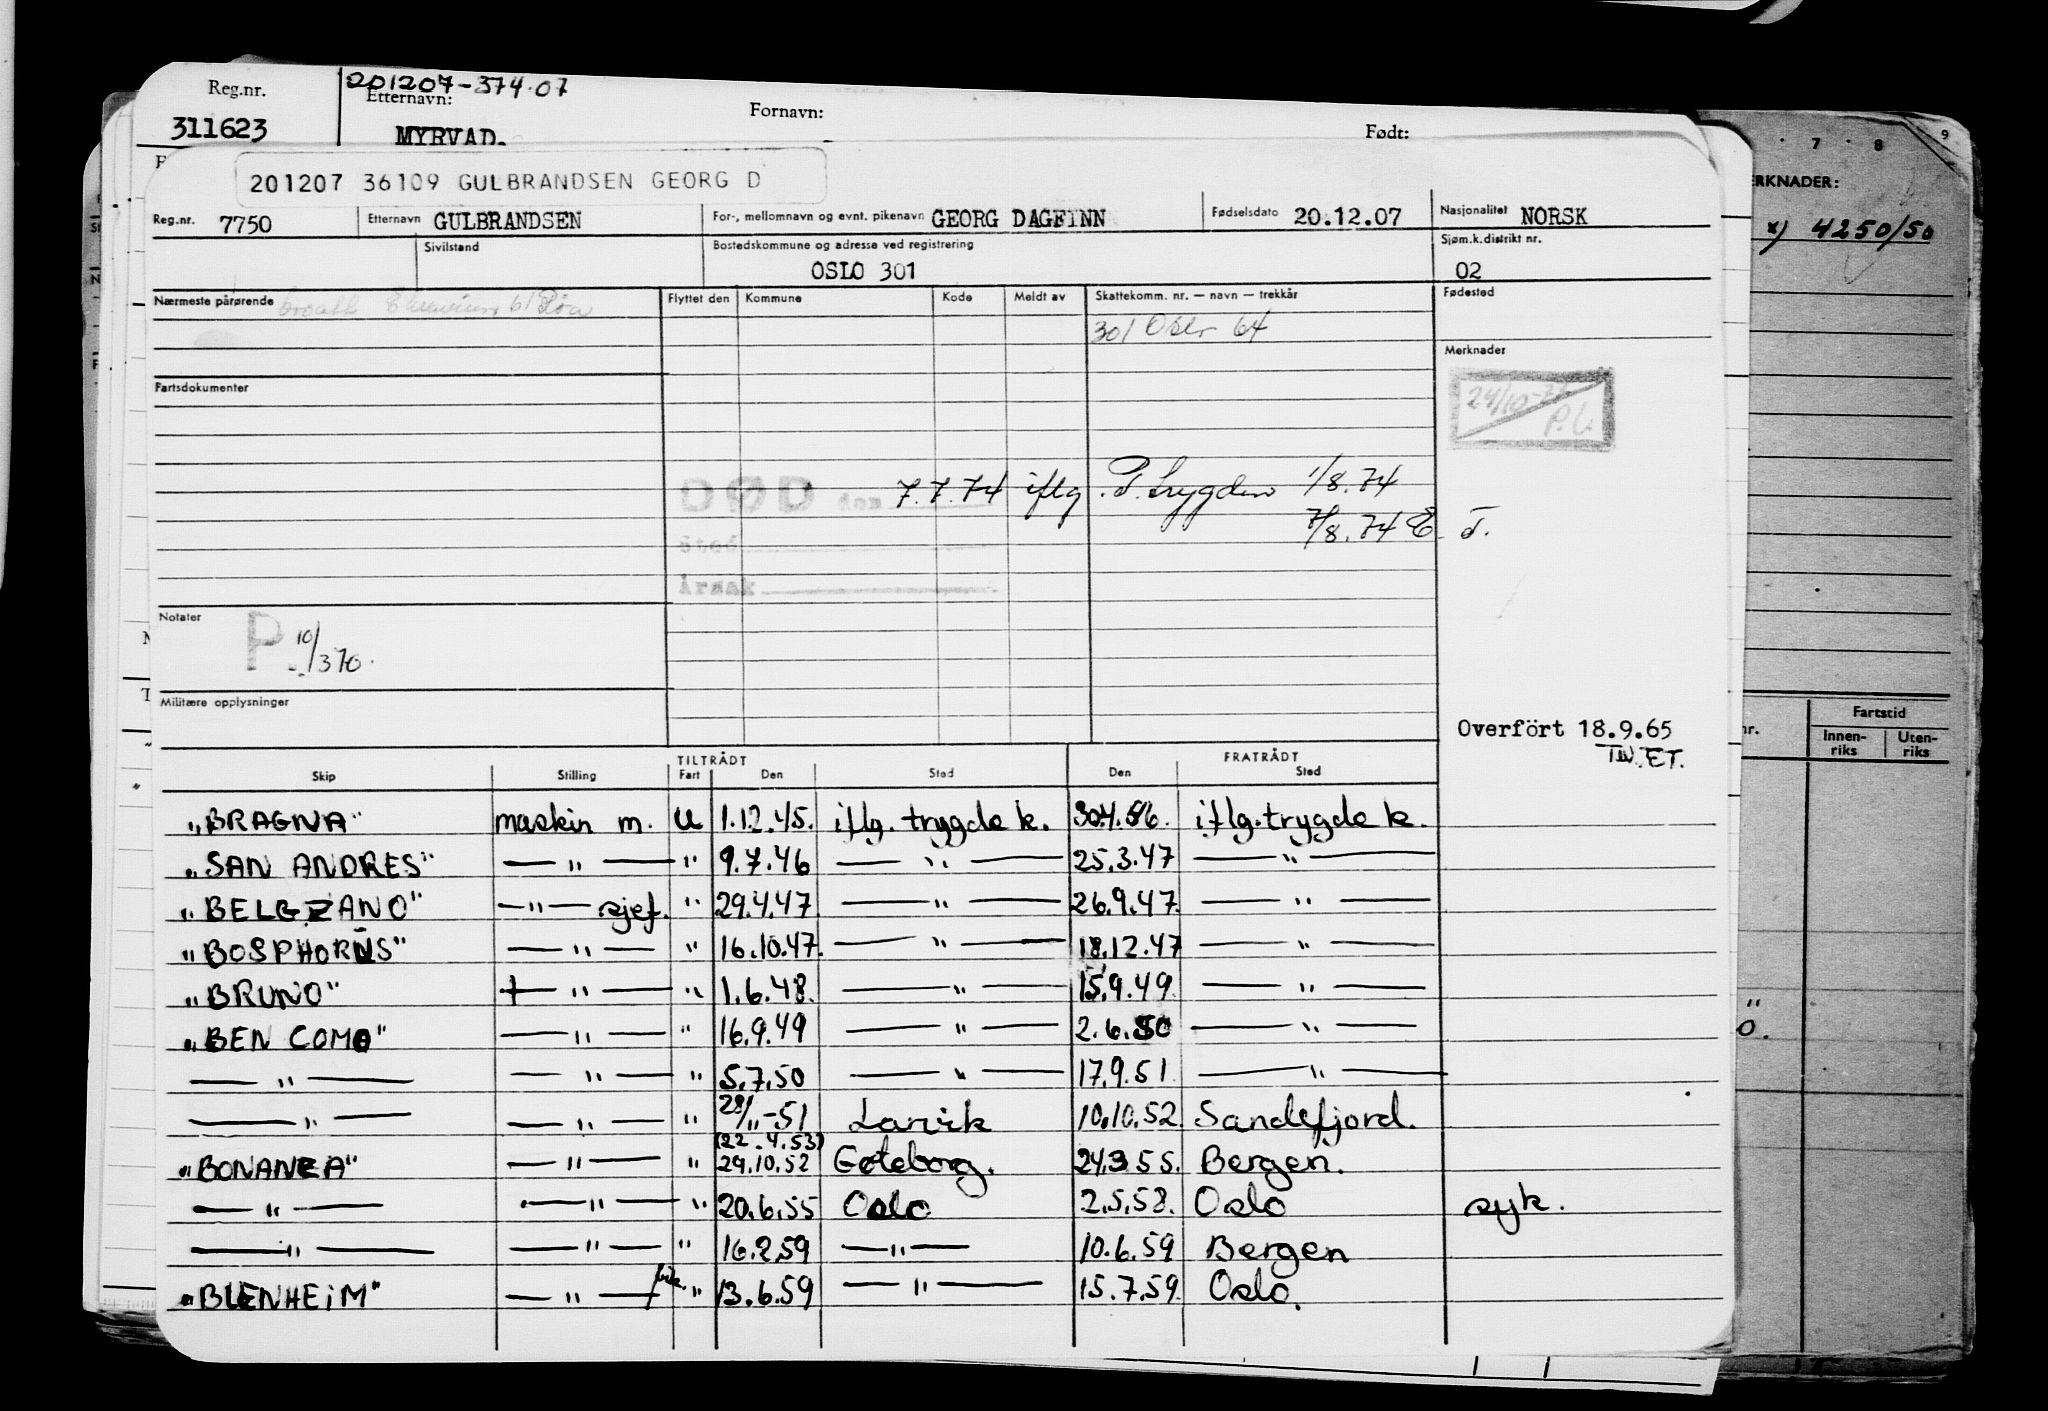 201207-374.07
Reg.nr. Etternavn: Fornavn: Født:
311623 MYRVAD.
9
7 8
ERKNADER:
x) 4250/50
201207 36109 GULBRANDSEN GEORG D
Reg.nr. 7750 Etternavn GULBRANDSEN For-, mellomnavn og evnt. pikenavn GEORG DAGFINN Fødselsdato 20.12.07 Nasjonalitet NORSK
Sivilstand Bostedskommune og adresse ved registrering Sjøm.k.distrikt nr.
OSLO 301 02
Nærmeste pårørende Flyttet den Kommune Kode Meldt av Skattekomm. nr. — navn — trekkår Fødested
301 Oslo 64
Merknader
24/10-7
P.L.
Fartsdokumenter
DØD den 7.7.74 iflg. P. trygden 1/8.74
7/8.74 E.T.
Sted
Årsak
Notater
P. 10/370.
Militære opplysninger
Overfört 18.9.65
TW.ET.
nr. Fartstid
Innen-riks Uten-riks
TILTRÅDT FRATRÅDT
Skip Stilling Fart Den Sted Den Sted
"BRAGNA" maskin m. U 1.12.45. iflg. trygde k. 30.4.46. iflg. trygde k.
"SAN ANDRES" — " — " 9.7.46 — " — 25.3.47 — " —
"BELGRANO" — " — sjef. " 29.4.47 — " — 26.9.47. — " —
"BOSPHORUS" — " — " 16.10.47. — " — 18.12.47 — " —
"BRUNO" — " — " 1.6.48. — " — 15.9.49. — " —
"BEN COMO" — " — " 16.9.49 — " — 2.6.50 — " —
— " — — " — " 5.7.50 — " — 17.9.51 — " —
— " — — " — " 28/11-51 Larvik 10.10.52. Sandefjord.
(22.4.53)
"BONANZA" — " — " 29.10.52 Gøteborg. 24.3.55. Bergen.
— " — — " — " 20.6.55 Oslo 2.5.58. Oslo syk.
— " — — " — " 16.2.59 — " — 10.6.59 Bergen
"BLENHEIM" — " — " 13.6.59 — " — 15.7.59. Oslo.